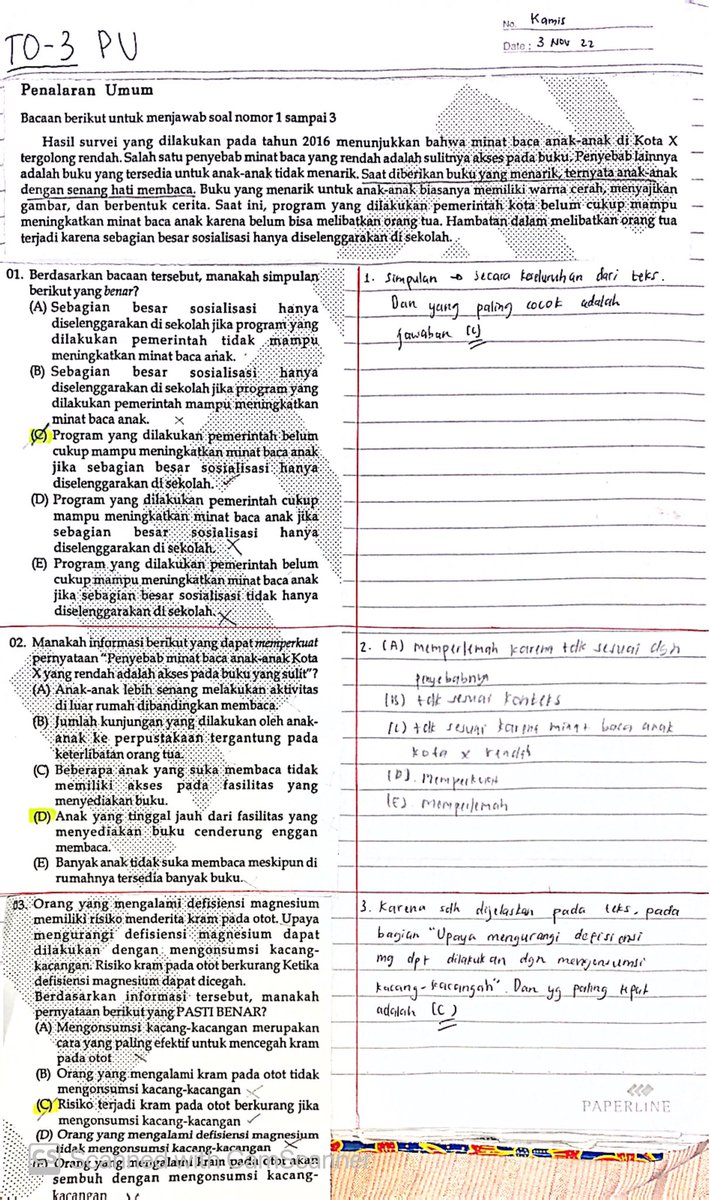 TO-3 PU
No. Kamis
Date: 3 Nov 22
Penalaran Umum
Bacaan berikut untuk menjawab soal nomor 1 sampai 3
Hasil survei yang dilakukan pada tahun 2016 menunjukkan bahwa minat baca anak-anak di Kota X
tergolong rendah. Salah satu penyebab minat baca yang rendah adalah sulitnya akses pada buku. Penyebab lainnya
adalah buku yang tersedia untuk anak-anak tidak menarik. Saat diberikan buku yang menarik, ternyata anak-anak
dengan senang hati membaca. Buku yang menarik untuk anak-anak biasanya memiliki warna cerah, menyajikan
gambar, dan berbentuk cerita. Saat ini, program yang dilakukan pemerintah kota belum cukup mampu
meningkatkan minat baca anak karena belum bisa melibatkan orang tua. Hambatan dalam melibatkan orang tua
terjadi karena sebagian besar sosialisasi hanya diselenggarakan di sekolah.
01. Berdasarkan bacaan tersebut, manakah simpulan
berikut yang benar?
(A) Sebagian besar sosialisasi hanya
diselenggarakan di sekolah jika program yang
dilakukan pemerintah tidak mampu
meningkatkan minat baca anak.
(B) Sebagian besar sosialisasi hanya
diselenggarakan di sekolah jika program yang
dilakukan pemerintah mampu meningkatkan
minat baca anak.
(C) Program yang dilakukan pemerintah belum
cukup mampu meningkatkan minat baca anak
jika sebagian besar sosialisasi hanya
diselenggarakan di sekolah.
(D) Program yang dilakukan pemerintah cukup
mampu meningkatkan minat baca anak jika
sebagian besar sosialisasi hanya
diselenggarakan di sekolah.
(E) Program yang dilakukan pemerintah belum
cukup mampu meningkatkan minat baca anak
jika sebagian besar sosialisasi tidak hanya
diselenggarakan di sekolah.
1. Simpulan → secara keseluruhan dari teks.
Dan yang paling cocok adalah
jawaban (C)
02. Manakah informasi berikut yang dapat memperkuat
pernyataan "Penyebab minat baca anak-anak Kota
X yang rendah adalah akses pada buku yang sulit"?
(A) Anak-anak lebih senang melakukan aktivitas
di luar rumah dibandingkan membaca.
(B) Jumlah kunjungan yang dilakukan oleh anak-
anak ke perpustakaan tergantung pada
keterlibatan orang tua.
(C) Beberapa anak yang suka membaca tidak
memiliki akses pada fasilitas yang
menyediakan buku.
(D) Anak yang tinggal jauh dari fasilitas yang
menyediakan buku cenderung enggan
membaca.
(E) Banyak anak tidak suka membaca meskipun di
rumahnya tersedia banyak buku.
2. (A) memperlemah karena tdk sesuai dgn
penyebabnya
(B) tdk sesuai konteks
(C) tdk sesuai karena minat baca anak
kota x rendah
(D). Memperkuat
(E). memperlemah
03. Orang yang mengalami defisiensi magnesium
memiliki risiko menderita kram pada otot. Upaya
mengurangi defisiensi magnesium dapat
dilakukan dengan mengonsumsi kacang-
kacangan. Risiko kram pada otot berkurang Ketika
defisiensi magnesium dapat dicegah.
Berdasarkan informasi tersebut, manakah
pernyataan berikut yang PASTI BENAR?
(A) Mengonsumsi kacang-kacangan merupakan
cara yang paling efektif untuk mencegah kram
pada otot
(B) Orang yang mengalami kram pada otot tidak
mengonsumsi kacang-kacangan
(C) Risiko terjadi kram pada otot berkurang jika
mengonsumsi kacang-kacangan
(D) Orang yang mengalami defisiensi magnesium
tidak mengonsumsi kacang-kacangan
(E) Orang yang mengalami kram pada otot akan
sembuh dengan mengonsumsi kacang-
kacangan
3. Karena sdh dijelaskan pada teks. pada
bagian "Upaya mengurangi defisiensi
mg dpt dilakukan dgn mengonsumsi
kacang-kacangah". Dan yg paling tepat
adalah (C)
PAPERLINE
CS Scanned with CamScanner